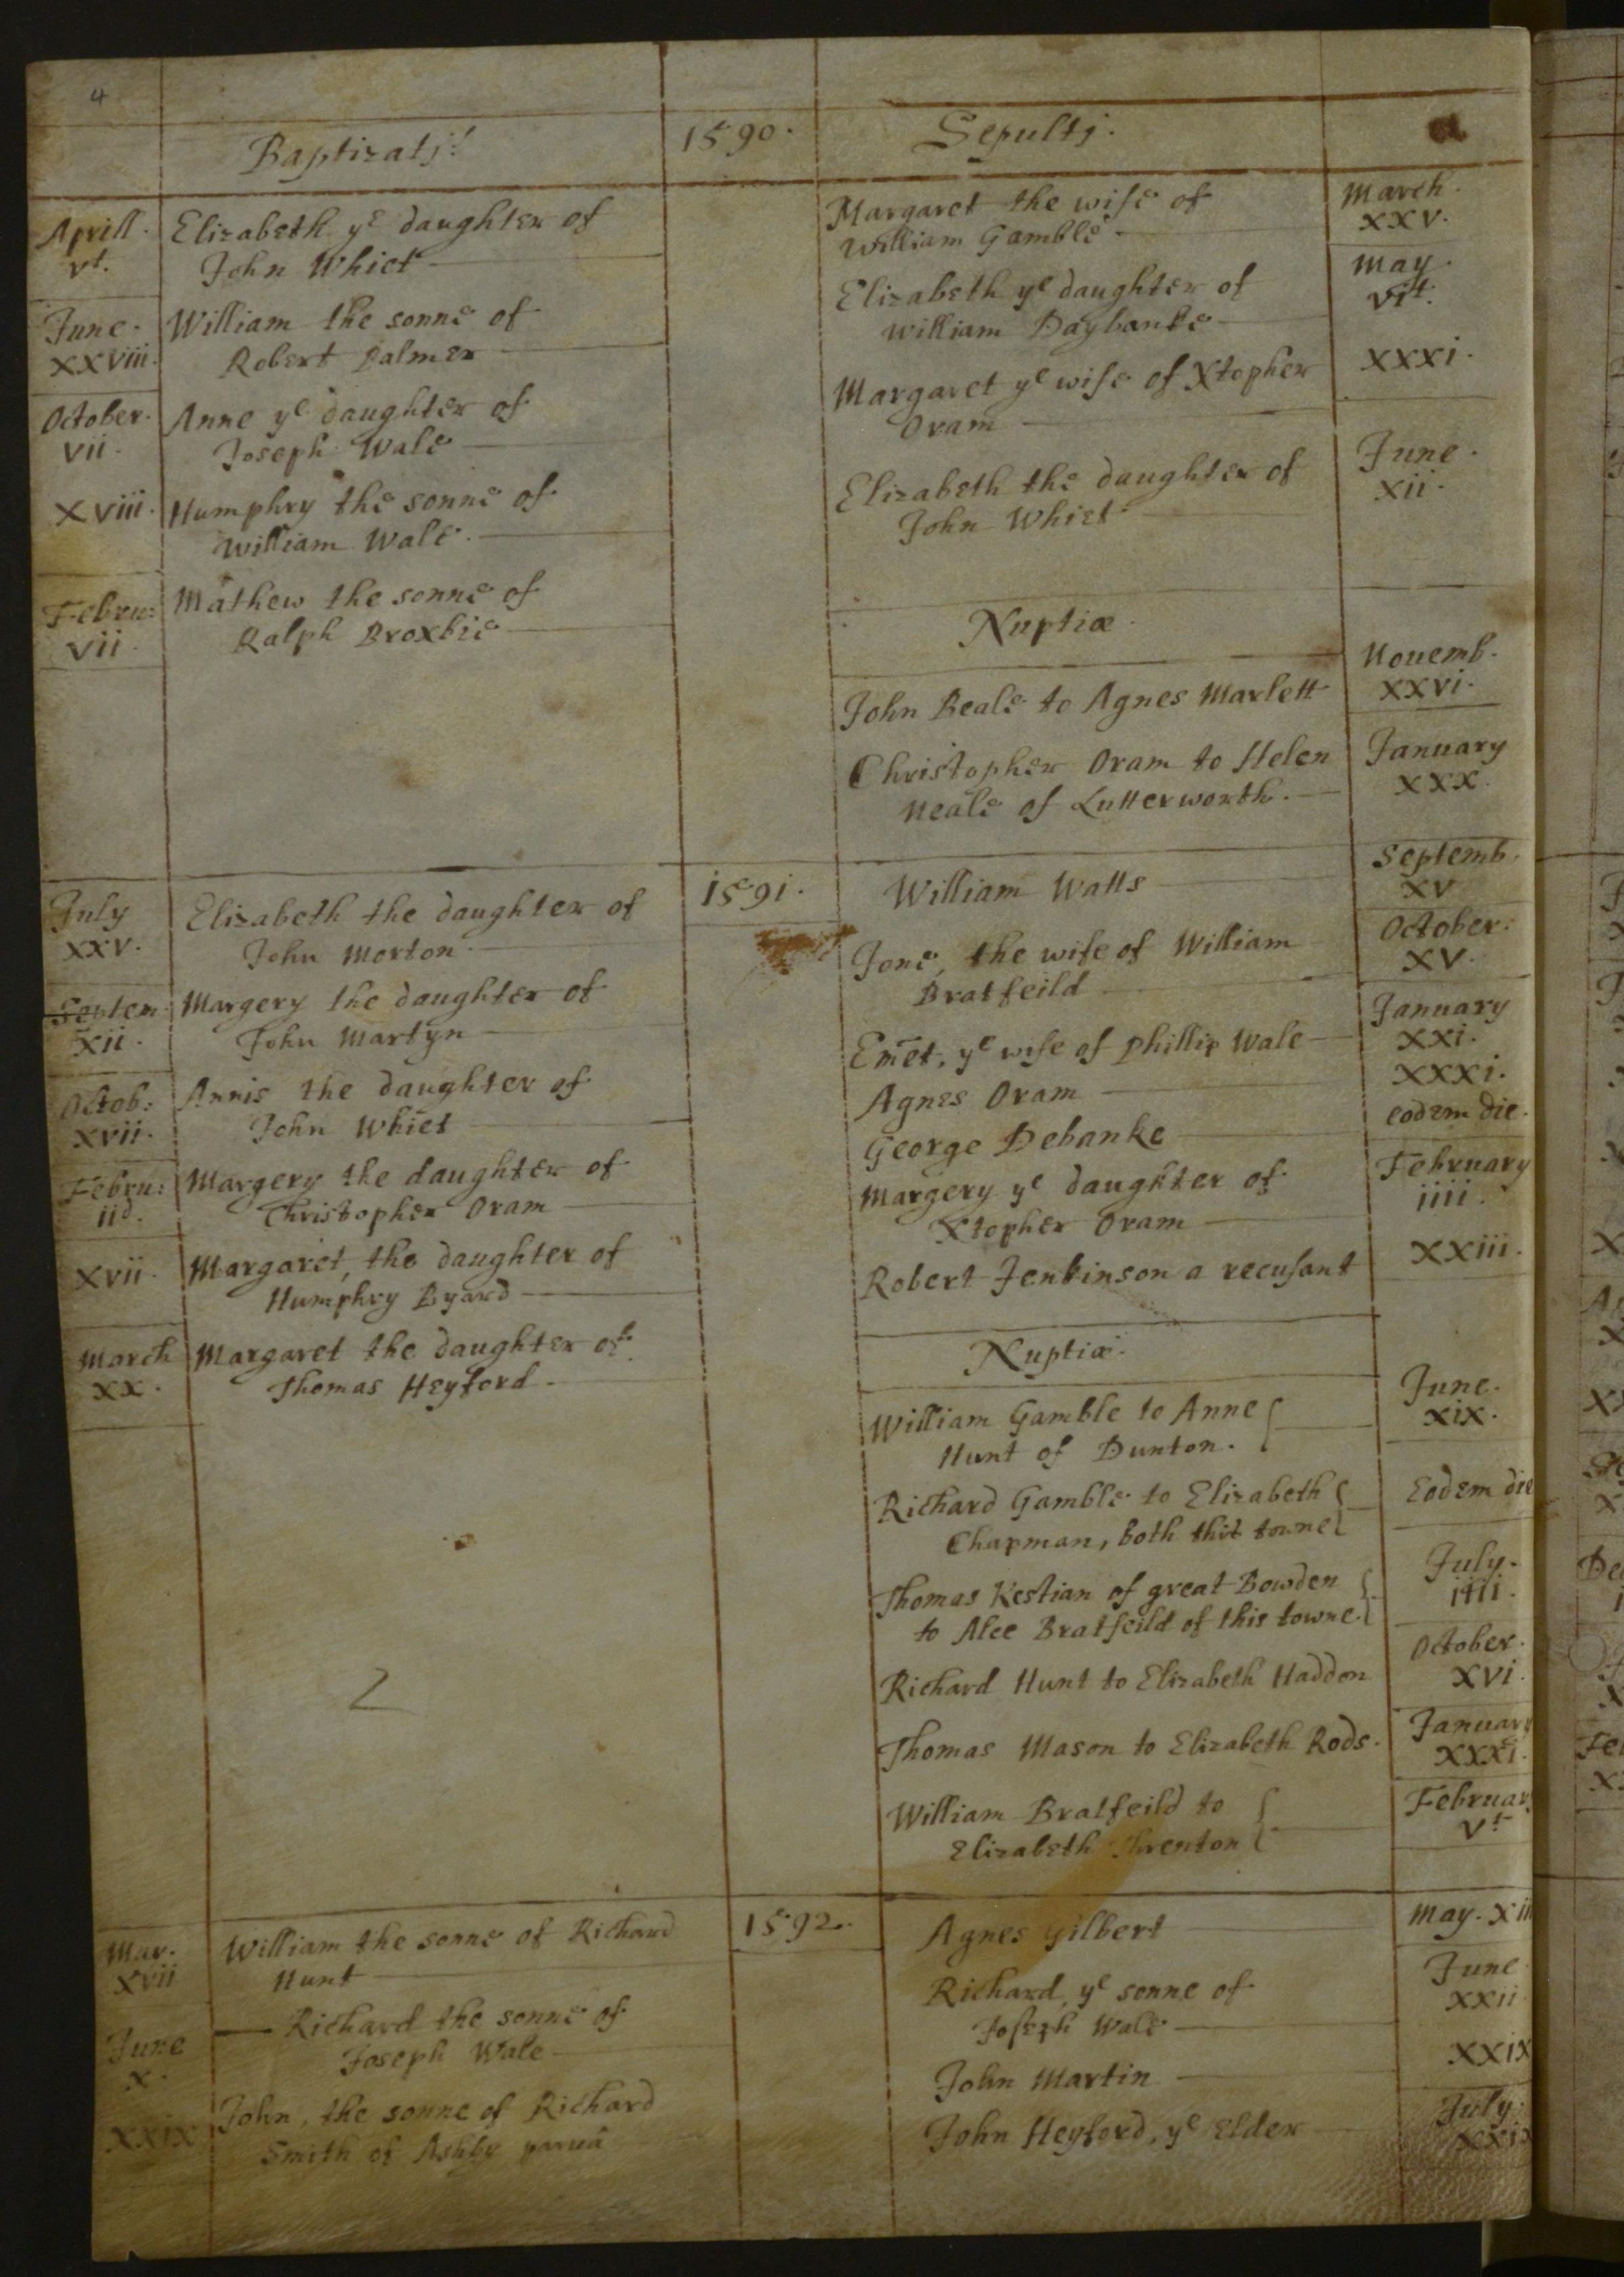 4
Baptizatj.
1590.
Sepultj.
a
Aprill.
vt.
Elizabeth ye daughter of
John Whiet
June.
xxviii.
William the sonne of
Robert Palmer
October.
vii.
Anne ye daughter of
Joseph Wale
xviii.
Humphry the sonne of
William Wale.
Febru:
vii.
Mathew the sonne of
Ralph Broxbie
Margaret the wife of
William Gamble
March.
xxv.
Elizabeth ye daughter of
William Daybanke
May.
vit.
Margaret ye wife of Xtopher
Oram
xxxi.
Elizabeth the daughter of
John Whiet
June.
xii.
Nuptiæ.
John Beale to Agnes Marlett
Nouemb.
xxvi.
Christopher Oram to Helen
Neale of Lutterworth.
January
xxx.
1591.
July
xxv.
Elizabeth the daughter of
John Morton.
Septem
xii.
Margery the daughter of
John Martyn
Octob:
xvii.
Annis the daughter of
John Whiet
Febru:
iid.
Margery the daughter of
Christopher Oram
xvii.
Margaret, the daughter of
Humphry Byard
March
xx.
Margaret the daughter of
Thomas Heyford.
2
William Watts
Septemb.
xv
Jone, the wife of William
Bratfeild
October:
xv.
Em̄et, ye wife of Phillip Wale
January
xxi.
Agnes Oram
xxxi.
George Debanke
eodem die.
Margery ye daughter of
Xtopher Oram
February
iiii.
Robert Jenkinson a recusant
xxiii.
Nuptiæ.
William Gamble to Anne
Hunt of Dunton.
June.
xix.
Richard Gamble to Elizabeth
Chapman, both this towne
Eodem die
Thomas Kestian of great Bowden
to Alce Bratfeild of this towne.
July.
iiii.
Richard Hunt to Elizabeth Haddon
October.
xvi.
Thomas Mason to Elizabeth Rods.
January
xxxi.
William Bratfeild to
Elizabeth
Februar
vt
1592.
May.
xvii
William the sonne of Richard
Hunt
June
x.
Richard the sonne of
Joseph Wale
xxix
John, the sonne of Richard
Smith of Ashby parua
Agnes Gilbert
May. xii
Richard, ye sonne of
Joseph Wale
June
xxii
John Martin
xxix
John Heyford, ye Elder
July.